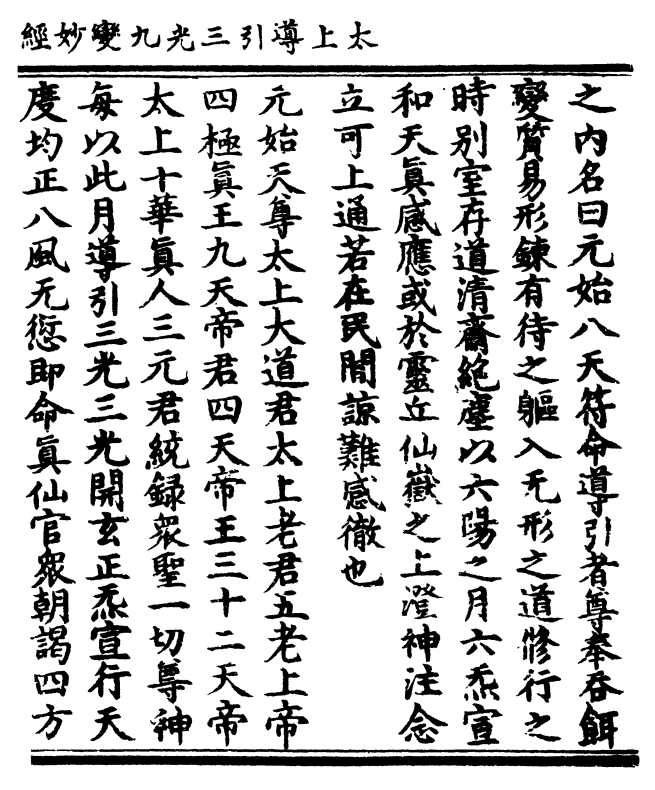 太上導引三光九變妙經
之內名曰元始八天符命導引者尊奉吞餌
變質易形鍊有待之軀入无形之道修行之
時別室存道清齋絶塵以六陽之月六炁宣
和天真感應或於靈丘仙嶽之上澄神注念
立可上通若在民間諒難感徹也
元始天尊太上大道君太上老君五老上帝
四極眞王九天帝君四天帝王三十二天帝
太上十華眞人三元君統録衆聖一切尊神
每以此月導引三光三光開玄正炁宣行天
度均正八風无愆即命眞仙官衆朝謁四方